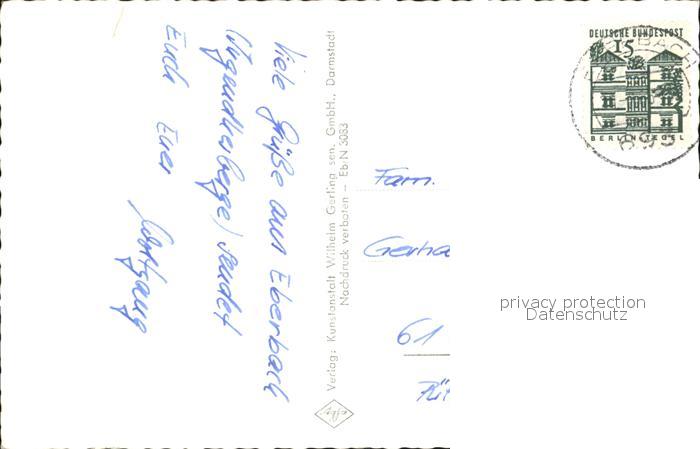 Viele Grüße aus Eberbach
(Jugendherberge) sendet
Euch Euer
Wolfgang
Verlag: Kunstanstalt Wilhelm Gerling sen. GmbH., Darmstadt
Nachdruck verboten — Eb-N 3083
Fam.
Gerha
61
DEUTSCHE BUNDESPOST
15
BERLIN TEGEL
693
privacy protection
Datenschutz